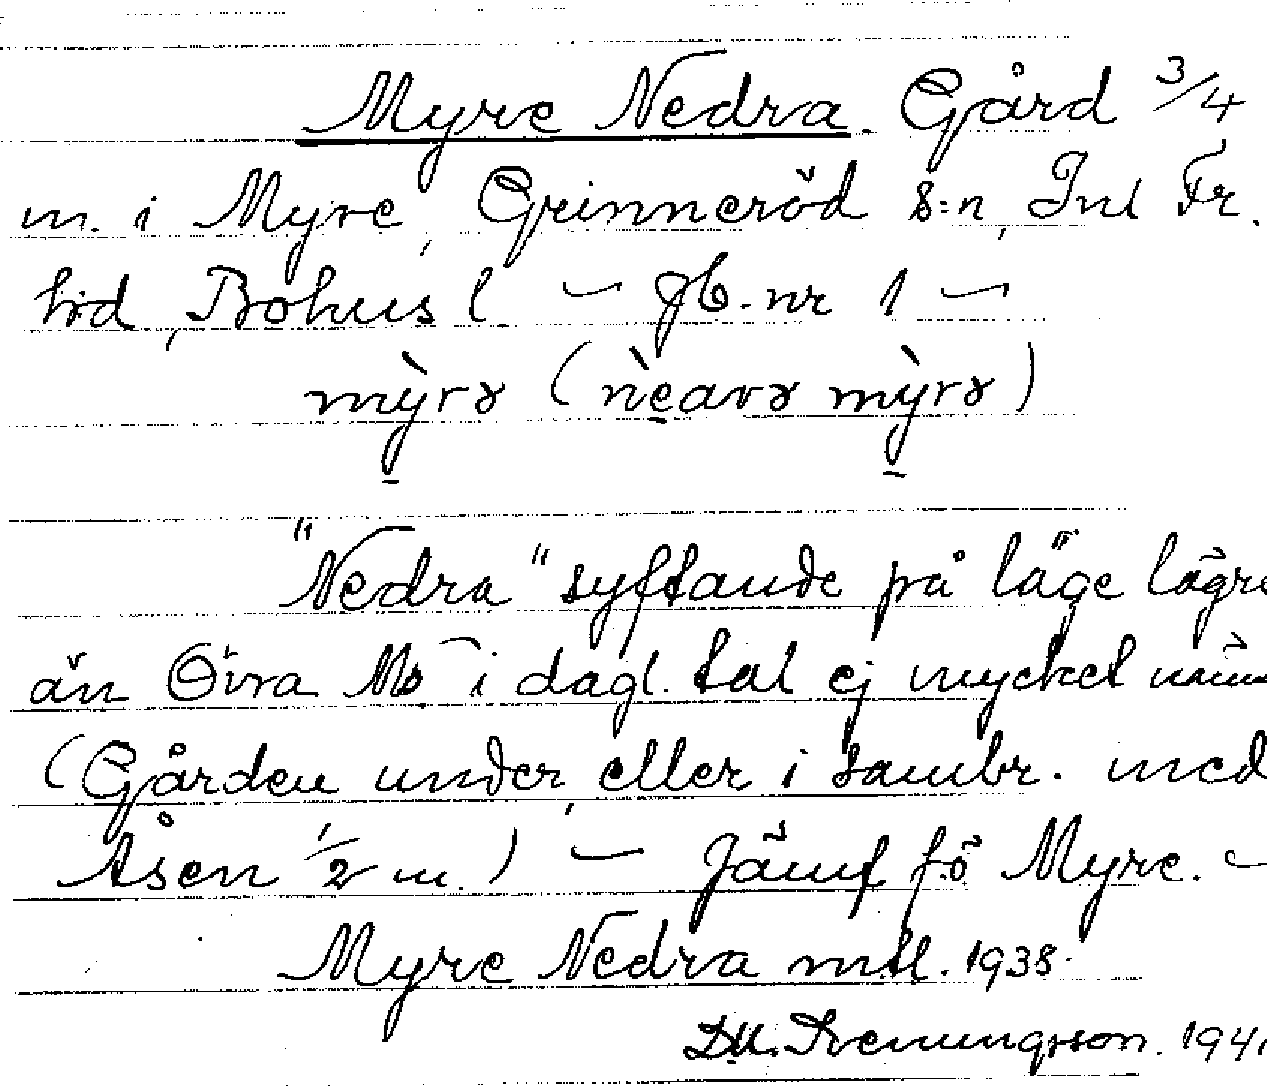 Myre Nedra. Gård 3/4
m. i Myre, Grinneröd s:n, Inl Fr.
hrd, Bohus l. – jb. nr 1 –
mỳrɤ (nèavɤ mỳrɤ)
"Nedra" syftande på läge lägre
än Övra M⁠ i dagl. tal ej mycket
(Gården under, eller i sambr. med
Åsen 1/2 m.) – Jämf f.ö Myre. –
Myre Nedra mtl. 1938.
D.U. Svenungsson.